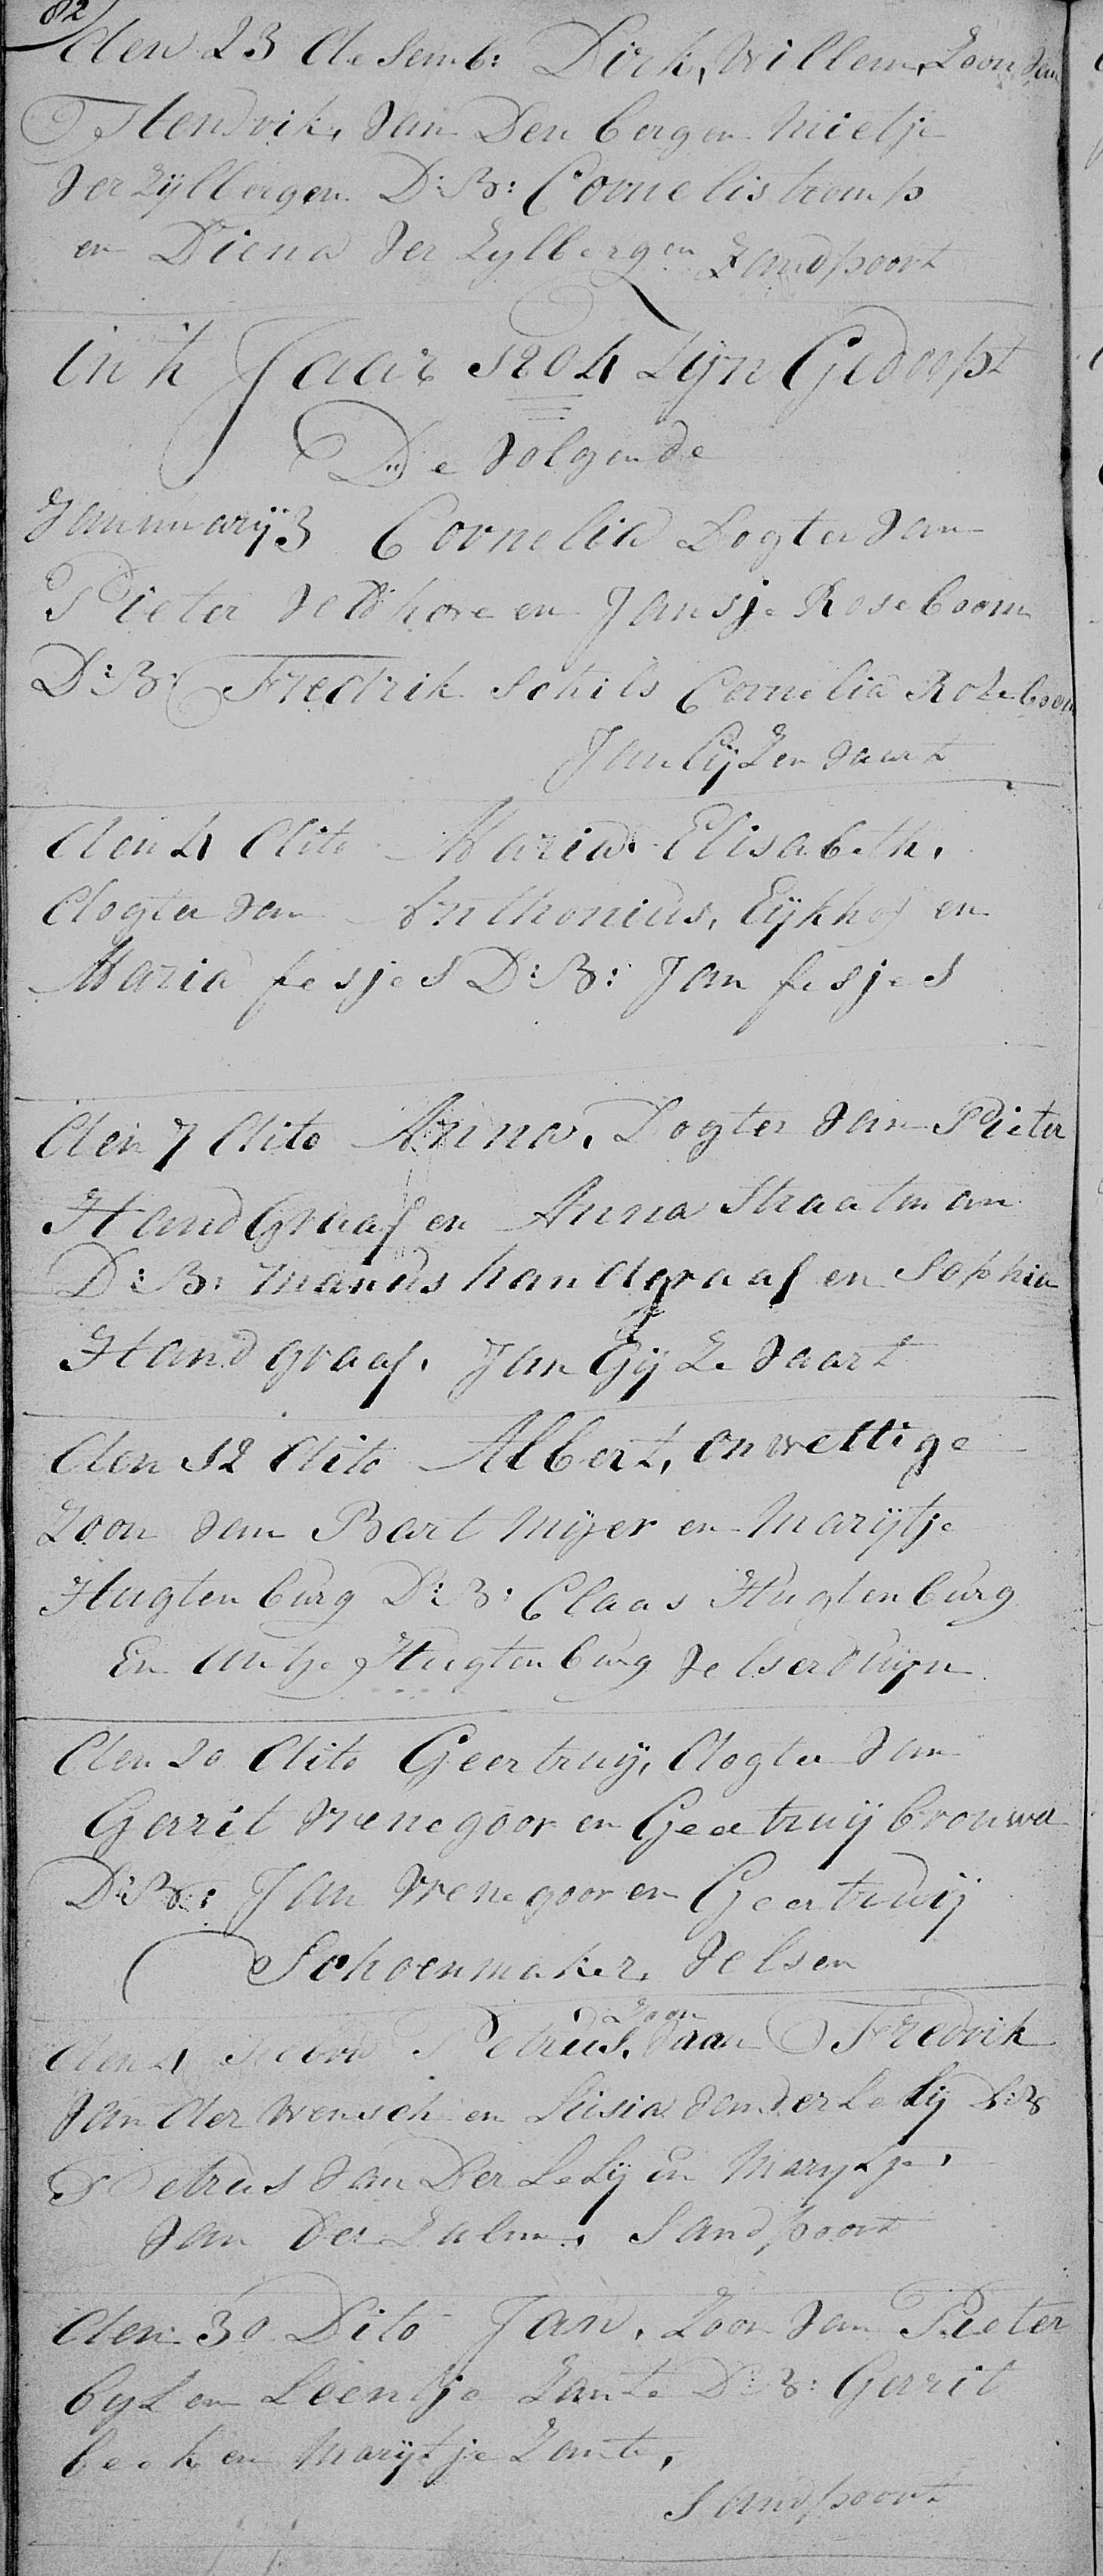 82
den 23 desemb: Dirk, Willem, Zoon van
Hendrik, van Den bergen Mietje
ver Zijlbergen D:B: Cornelis tromp
en Diena ver Zylbergen Zandpoort
in 't Jaar 1804 Zyn Gedoopt
De volgende
Jannuarij 3 Cornelia Dogter van
Pieter Velthove en Jansje Roseboom
D:B: Fredrik Schils Cornelia Rozeboom
Jan Gijzen vaart
den 4 dito Maria Elisabeth,
dogter van Anthonius, Eijkhof en
Maria fesjes D:B: Jan fesjes
den 7 dito Anna, Dogter van Pieter
HandGraaf en Anna Straatman
D:B: Manus handgraaf en Sophia
Handgraaf, Jan Gijze vaart
den 12 dito Albert, onwettige
Zoon van Bart Mijer en Marijtje
Hugtenburg D:B: Claas Hugtenburg
En antje Hugtenburg velserduijn
den 20 dito Geertruij, dogter van
Gerrit Wenegoor en Geertruij brouwer
D:B: Jan Wenegoor en Geertruij
Schoenmaker, velsen
den 4 Petrus, Zoon vaan Fredrik
van der Wensch en Lusia van der Lelij D:B
Petrus van Der Lelij en Marytje,
van Der Zalm, Sandpoort
den 30 Dito Jan, Zoon van Pieter
byl en Leentje Zante D:B: Gerrit
beek en Marijtje Zante,
Sandpoort